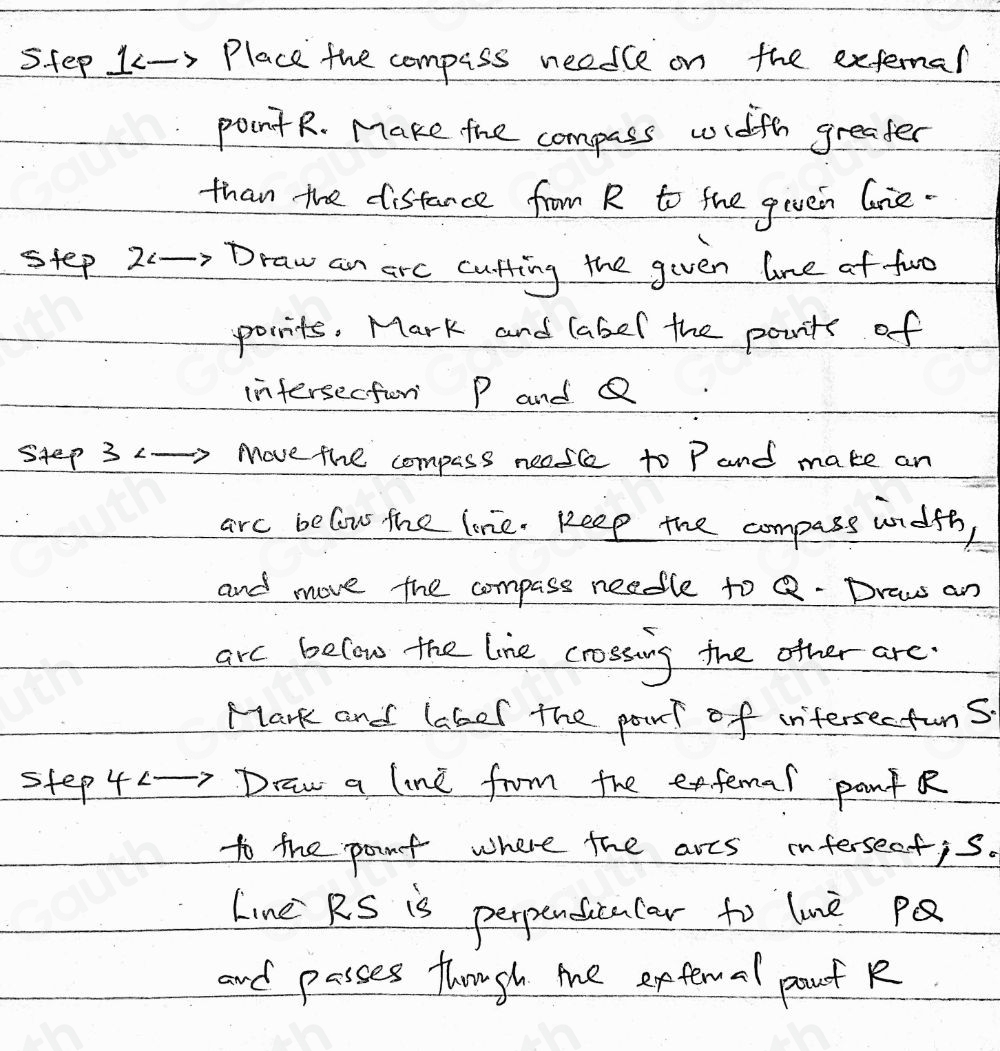 Step 1<—> Place the compass needle on the external
point R. Make the compass width greater
than the distance from R to the given line.
Step 2<—> Draw an arc cutting the given line at two
points. Mark and label the points of
intersection P and Q
Step 3 <—> Move the compass needle to P and make an
arc below the line. Keep the compass width,
and move the compass needle to Q. Draw an
arc below the line crossing the other arc.
Mark and label the point of intersection S.
Step 4 <—> Draw a line from the external point R
to the point where the arcs intersect; S.
Line RS is perpendicular to line PQ
and passes through the external point R